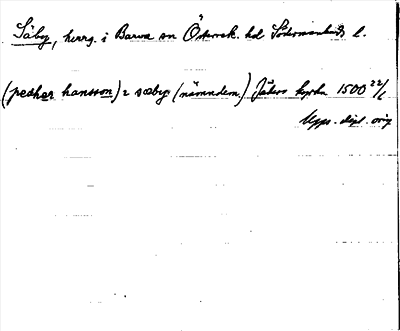 Säby, herrg. i Barva sn Österrek. hd Södermanlands l.
(pedher hansson) i sæby (nämndem.) Jäders kyrka 1500 22/1
Upps. dipl. orig